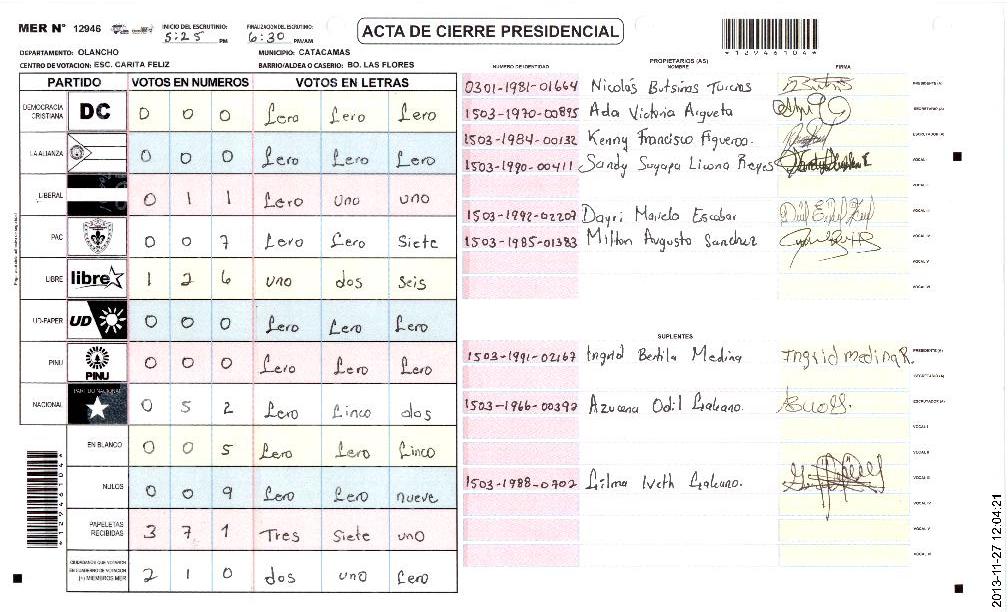 MER N° 12946 INICIO DEL ESCRUTINIO: 5:25 PM FINALIZACION DEL ESCRUTINIO: 6:30 PM/AM ACTA DE CIERRE PRESIDENCIAL
*1294610 4*
DEPARTAMENTO: OLANCHO MUNICIPIO: CATACAMAS
CENTRO DE VOTACION: ESC. CARITA FELIZ BARRIO/ALDEA O CASERIO: BO. LAS FLORES
PARTIDO VOTOS EN NUMEROS VOTOS EN LETRAS
DEMOCRACIA CRISTIANA DC 0 0 0 Cero Cero Cero
LA ALIANZA 0 0 0 Cero Cero Cero
LIBERAL 0 1 1 Cero uno uno
PAC 0 0 7 Cero Cero Siete
LIBRE libre 1 2 6 uno dos seis
UD-FAPER UD 0 0 0 Cero Cero Cero
PINU PINU 0 0 0 Cero Cero Cero
NACIONAL PARTIDO NACIONAL 0 5 2 Cero Cinco dos
EN BLANCO 0 0 5 Cero Cero Cinco
NULOS 0 0 9 Cero Cero nueve
PAPELETAS RECIBIDAS 3 7 1 Tres Siete uno
CIUDADANOS QUE VOTARON EN CUADERNO DE VOTACION (+) MIEMBROS MER 2 1 0 dos uno Cero
PROPIETARIOS (AS)
NUMERO DE IDENTIDAD NOMBRE FIRMA
0301-1981-01664 Nicolás PRESIDENTE (A)
1503-1970-00895 Ada Victoria Argueta SECRETARIO (A)
1503-1984-00132 Kenny Francisco Figueroa. ESCRUTADOR (A)
1503-1990-00411 Sandy Suyapa Licona Reyes VOCAL I
VOCAL II
1503-1992-02207 Dayri Marielo Escobar VOCAL III
1503-1985-01383 Milton Augusto Sanchez VOCAL IV
VOCAL V
VOCAL VI
SUPLENTES
1503-1991-02167 Ingrid Bertila Medina Ingrid medina R. PRESIDENTE (A)
SECRETARIO (A)
1503-1966-00397 Azucena Odil Galeano. ESCRUTADOR (A)
VOCAL I
VOCAL II
1503-1988-0702 Gilma Iveth Galeano. VOCAL III
VOCAL IV
VOCAL V
VOCAL VI
2013-11-27 12:04:21